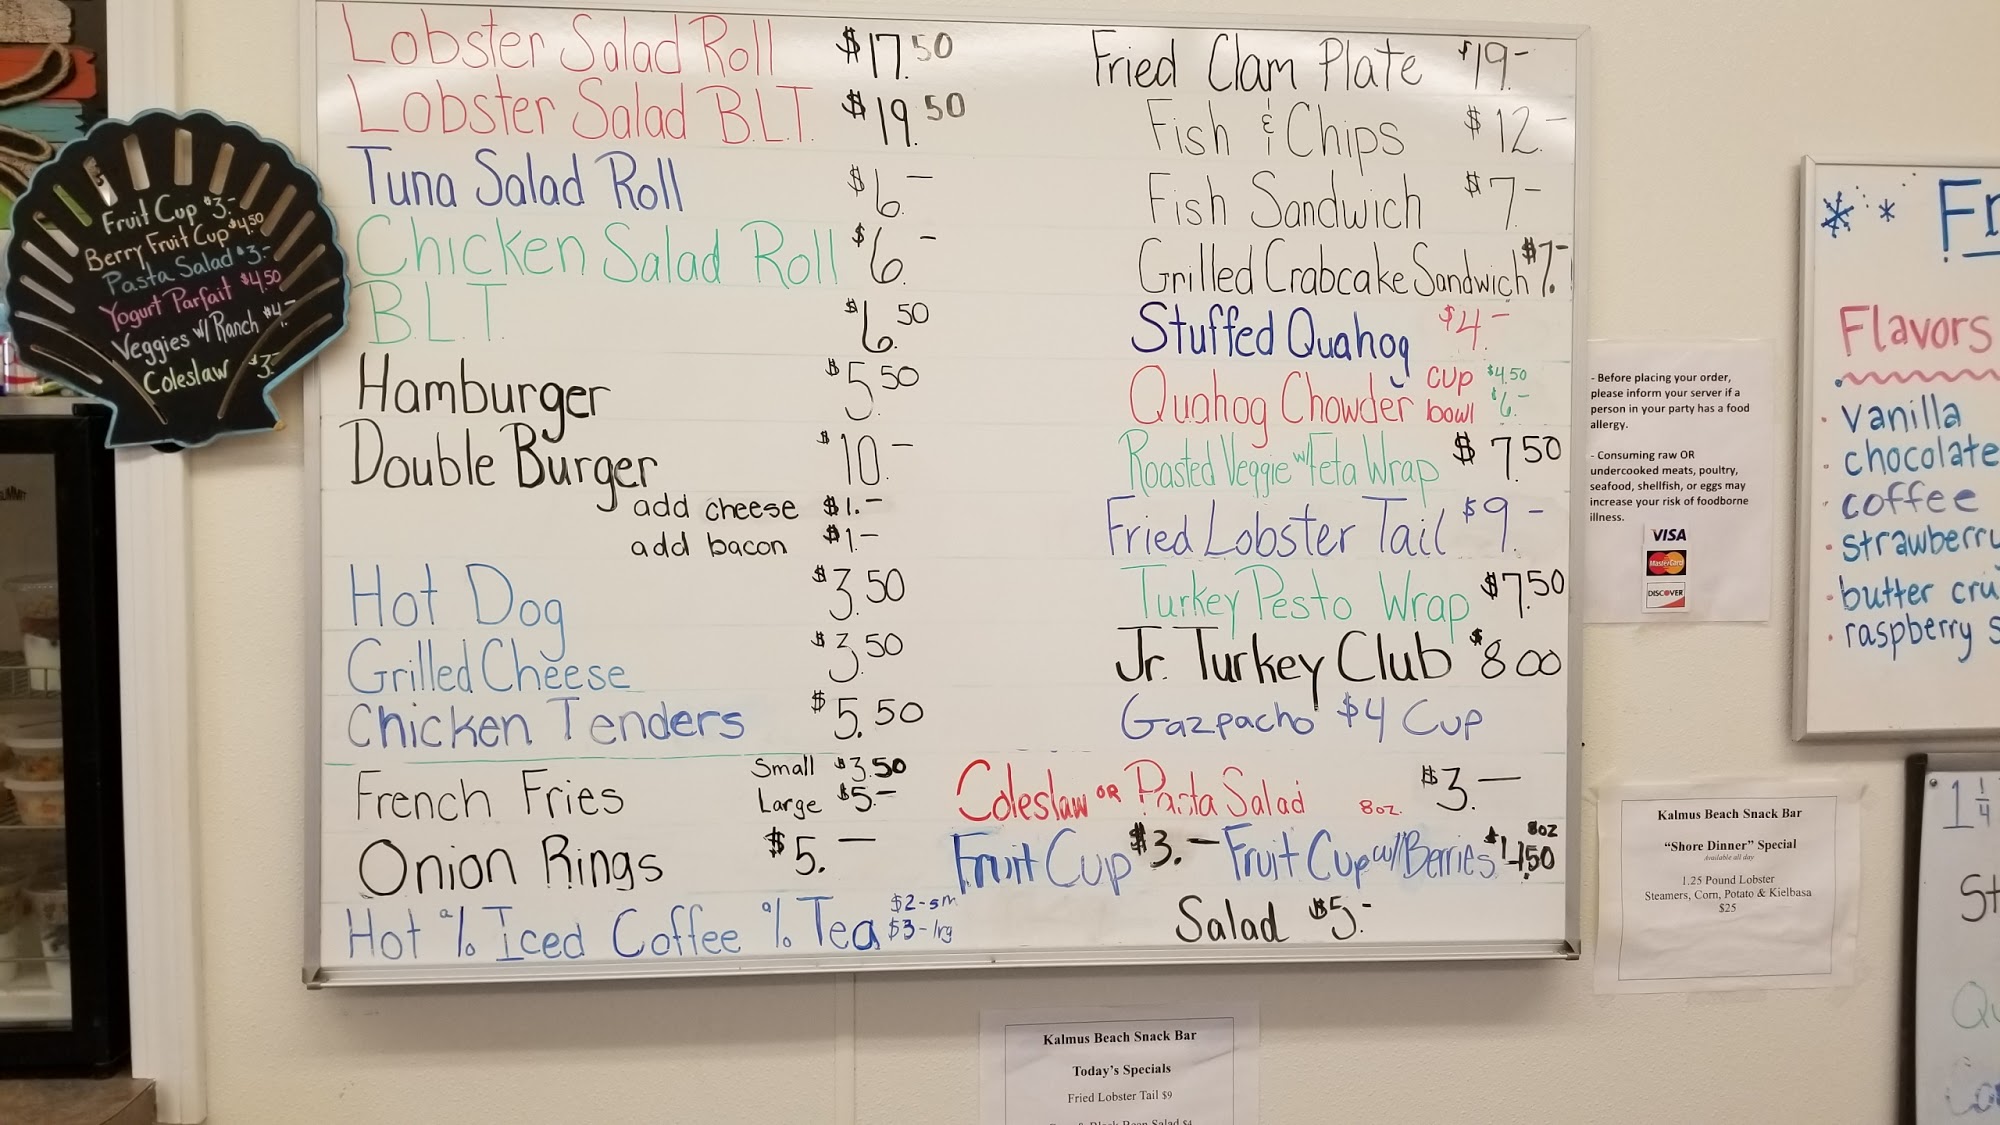 Fruit Cup $3.-
Berry Fruit Cup $4.50
Pasta Salad $3.-
Yogurt Parfait $4.50
Veggies w/ Ranch $4.-
Coleslaw $3.-
Lobster Salad Roll $17.50
Lobster Salad B.L.T. $19.50
Tuna Salad Roll $6.-
Chicken Salad Roll $6.-
B.L.T. $6.50
Hamburger $5.50
Double Burger $10.-
add cheese $1.-
add bacon $1-
Hot Dog $3.50
Grilled Cheese $3.50
Chicken Tenders $5.50
French Fries Small $3.50
Large $5.-
Onion Rings $5.-
Hot % Iced Coffee % Tea $2-sm
$3-lrg
Fried Clam Plate $19.-
Fish & Chips $12.-
Fish Sandwich $7.-
Grilled Crabcake Sandwich $7.-
Stuffed Quahog $4.-
Quahog Chowder cup $4.50
bowl $6.-
Roasted Veggie w/ Feta Wrap $7.50
Fried Lobster Tail $9.-
Turkey Pesto Wrap $7.50
Jr. Turkey Club $8.00
Gazpacho $4 Cup
Coleslaw OR Pasta Salad 8oz. $3.-
Fruit Cup $3.- Fruit Cup w/Berries $4.50 8oz
Salad $5.-
- Before placing your order,
please inform your server if a
person in your party has a food
allergy.
- Consuming raw OR
undercooked meats, poultry,
seafood, shellfish, or eggs may
increase your risk of foodborne
illness.
VISA
MasterCard
DISCOVER
Kalmus Beach Snack Bar
"Shore Dinner" Special
Available all day
1.25 Pound Lobster
Steamers, Corn, Potato & Kielbasa
$25
Kalmus Beach Snack Bar
Today's Specials
Fried Lobster Tail $9
Flavors
vanilla
chocolate
coffee
strawberry
butter
raspberry
1 1/4